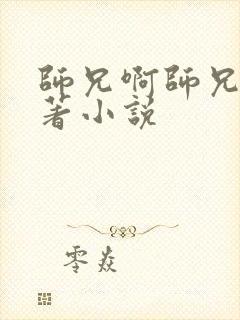 師兄啊師兄
著小説
零焱